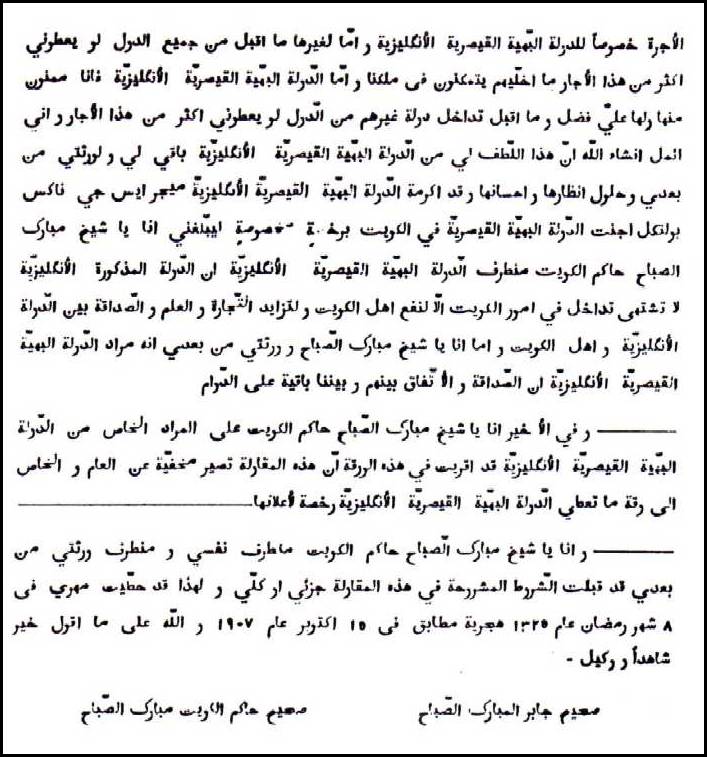 الأجرة خصوصاً للدولة البهية القيصرية الأنگليزية و امّا لغيرها ما اقبل من جميع الدول لو يعطوني
اكثر من هذا الأجار ما اخلّيهم يتمكنون فى ملكنا و امّا الّدولة البهيّة القيصريّة الأنگليزيّة فانا ممنون
منها ولها عليّ فضل و ما اقبل تداخل دولة غيرهم من الّدول لو يعطوني اكثر من هذا الأجار و اني
انمل انشاء اللّه انّ هذا اللّطف لي من الّدولة البهيّة القيصريّة الأنگليزيّة باقي لي و لورثتي من
بعدي و حلول انظارها و احسانها و قد اكرمة الّدولة البهيّة القيصريّة الأنگليزيّة ميجر ايس جي ناكس
بولتكل اجنت الّدولة البهيّة القيصريّة في الكويت مخصوصةٍ ايبلغني انا يا شيخ مبارك
الصباح حاكم الكويت منطرف الّدولة البهيّة القيصريّة الأنگليزيّة ان الّدولة المذكورة الأنگليزيّة
لا تشتهى تداخل في امور الكويت الّا لنفع اهل الكويت و لتزايد التّجارة و العلم و الصّداقة بين الّدولة
الأنگليزيّة و اهل الكويت و اما انا يا شيخ مبارك الصّباح و ورثتي من بعدي انه مراد الّدولة البهيّة
القيصريّة الأنگليزيّة ان الصّداقة و الأتّفاق بينهم و بيننا باقية على الدّوام
و في الأخير انا يا شيخ مبارك الصّباح حاكم الكويت على المراد الخاص من الّدولة
البهيّة القيصريّة الأنگليزيّة قد اقريت في هذه الورقة أنّ هذه المقاولة تصير مخفيّة عن العام و الخاص
الى وقة ما تعطي الّدولة البهيّة القيصريّة الأنگليزيّة رخصة لأعلانها
و انا يا شيخ مبارك الصّباح حاكم الكويت ماطرف نفسي و منطرف ورثتي من
بعدي قد قبلت الشّروط المشروحة في هذه المقاولة جزئي او كلّي و لهذا قد حطّيت مهري فى
٨ شهر رمضان عام ١٣٢٥ هجرية مطابق فى ١٥ اكتوبر عام ١٩٠٧ و اللّه على ما اقول خير
شاهداً و وكيل -
صحيح جابر المبارك الصّباح
صحيح حاكم الكويت مبارك الصّباح